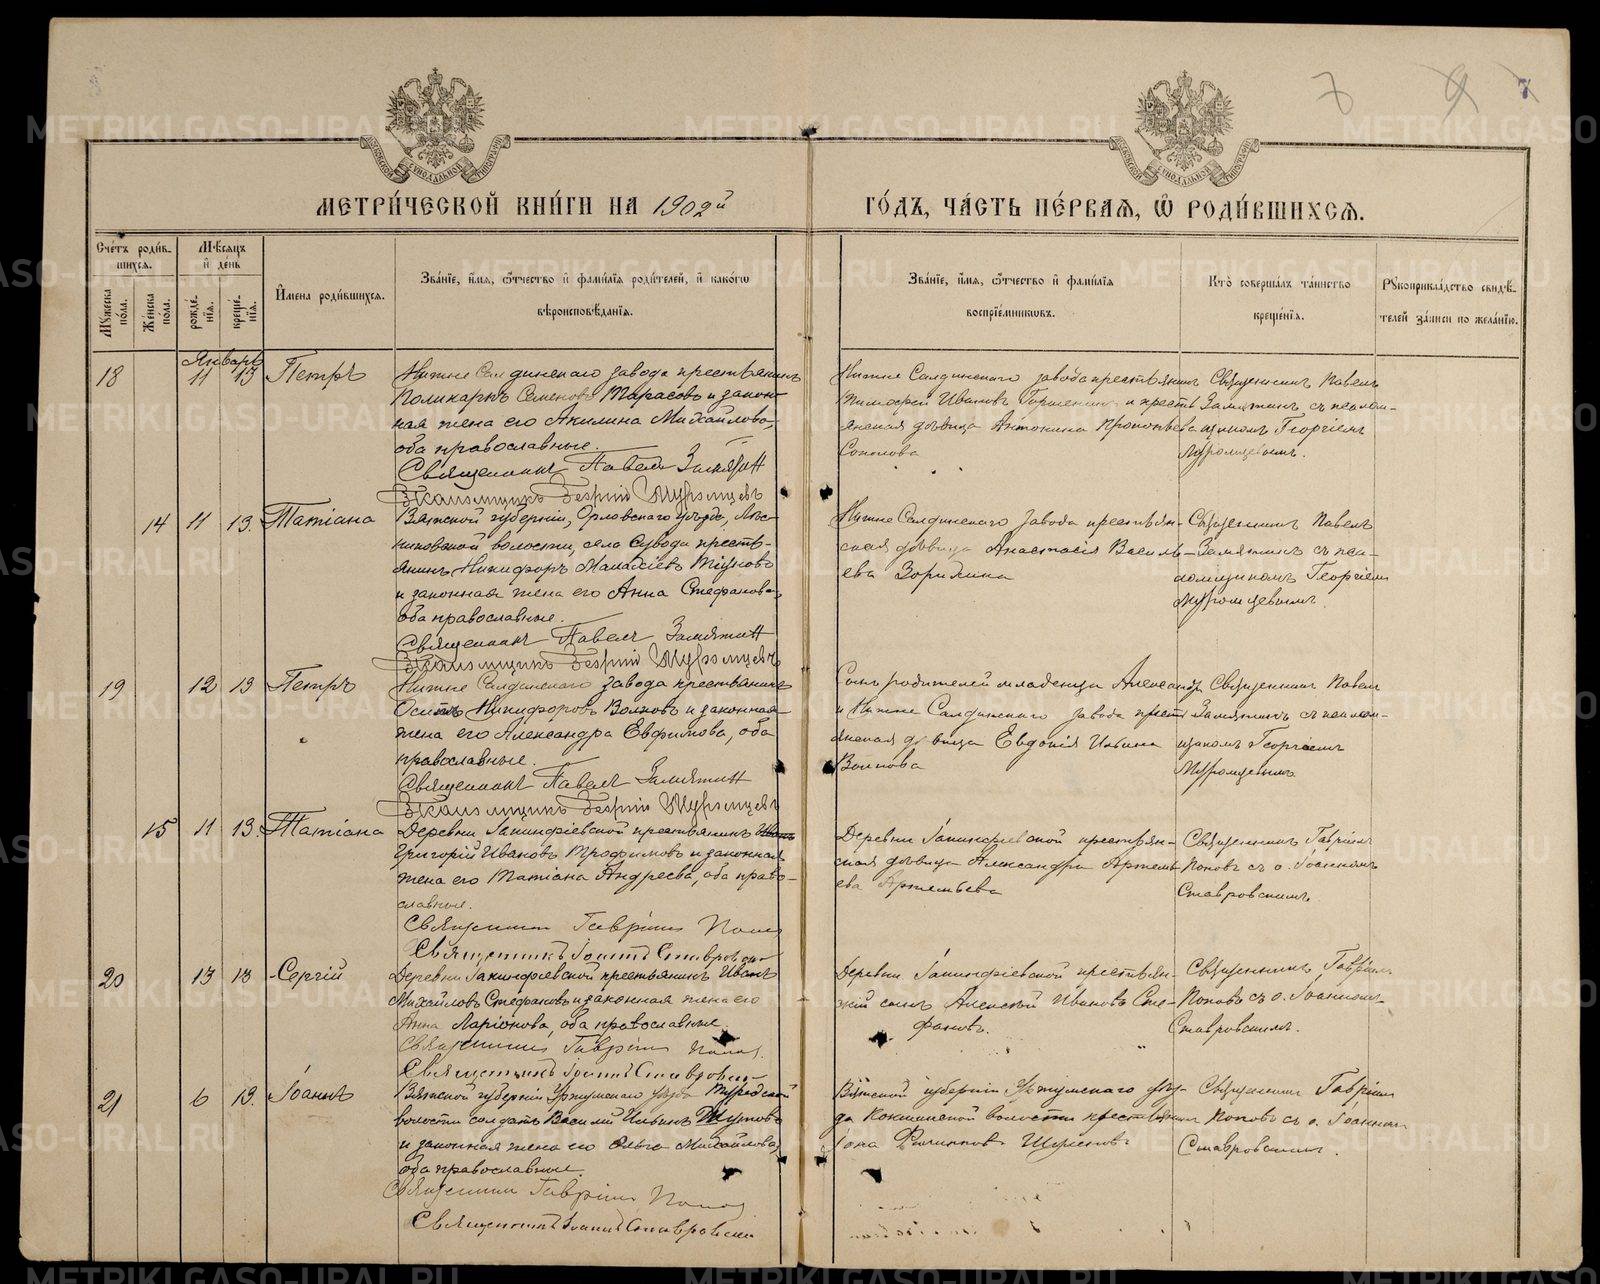 7 9 7
МЕТРИ́ЧЕСКОЙ КНИ́ГИ НА 1902й ГО́ДЪ, ЧА́СТЬ ПЕ́РВАЯ, Ѽ РОДИ́ВШИХСЯ.
Сче́тъ роди́в-
шихся.
Му́жеска по́ла.
Же́нска по́ла.
Мѣ́сяцъ
и҆ де́нь
рожде́-
нїя.
креще́-
нїя.
И҆мена роди́вшихся.
Зва́нїе, и҆́мя, ѻ҆́тчество и҆ фами́лїя роди́телей, и҆ како́гѡ
вѣроисповѣ́данїя.
Зва́нїе, и҆́мя, ѻ҆́тчество и҆ фами́лїя
воспрїе́мниковъ.
Кто̀ соверша́лъ та́инство
креще́нїя.
Рꙋкоприкла́дство свидѣ́-
телей за́писи по жела́нїю.
Январь
18 11 13 Петръ
Нижне Салдинскаго завода крестьянинъ
Поликарпъ Семеновъ Тарасовъ и закон-
ная жена его Акилина Михайлова,
оба православные.
Священникъ Павелъ Замятин
Псаломщикъ Георгій Муромцевъ
Нижне Салдинскаго завода крестьянинъ
Тимофей Ивановъ и крестъ-
янская дѣвица Антонина Прокопьева
Соколова
Священникъ Павелъ
Замятинъ съ псалом-
щикомъ Георгіемъ
Муромцевымъ.
14 11 13. Татіана
Вятской губерніи, Орловскаго уѣзда,
волости, села Сувода кресть-
янинъ Никифоръ Малахіевъ
и законная жена его Анна Стефанова,
оба православные.
Священникъ Павелъ Замятин
Псаломщикъ Георгій Муромцевъ
Нижне Салдинскаго завода крестьян-
ская дѣвица Анастасія Василь-
ева Зорихина
Священникъ Павелъ
Замятинъ съ пса-
ломщикомъ Георгіемъ
Муромцевымъ.
19 12 13 Петръ
Нижне Салдинскаго завода крестьянинъ
Осипъ Никифоровъ Волковъ и законная
жена его Александра Евфимова, оба
православные.
Священникъ Павелъ Замятин
Псаломщикъ Георгій Муромцевъ
Сынъ родителей младенца Александръ
и Нижне Салдинскаго завода кресть-
янская дѣвица Евдокія Ильина
Волкова
Священникъ Павелъ
Замятинъ съ псалом-
щикомъ Георгіемъ
Муромцевымъ
15 11 13. Татіана
Деревни Іакинфіевской крестьянинъ
Григорій Ивановъ Трофимовъ и законная
жена его Татіана Андреева, оба право-
славные.
Священникъ Гавріилъ Поповъ
Священникъ Іоаннъ Ставровскій
Деревни Іакинфіевской крестьян-
ская дѣвица Александра Артемь-
ева Артемьева
Священникъ Гавріилъ
Поповъ съ о. Іоанномъ
Ставровскимъ.
20 13 13 Сергій
Деревни Іакинфіевской крестьянинъ Иванъ
Михайловъ Стефановъ и законная жена его
Анна Ларіонова, оба православные.
Священникъ Гавріилъ Поповъ.
Священникъ Іоаннъ Ставровскій
Деревни Іакинфіевской крестьян-
скій сынъ Алексѣй Ивановъ Сте-
фановъ.
Священникъ Гавріилъ
Поповъ съ о. Іоанномъ
Ставровскимъ.
21 6 13. Іоаннъ
Вятской губерніи Уржумскаго уѣзда Турекской
волости солдатъ Василій Ильинъ
и законная жена его Ольга Михайлова,
оба православные.
Священникъ Гавріилъ Поповъ
Священникъ Іоаннъ Ставровскій
Вятской губерніи Уржумскаго уѣз-
да волости крестьянинъ
Іона Филипповъ
Священникъ Гавріилъ
Поповъ съ о. Іоанномъ
Ставровскимъ.